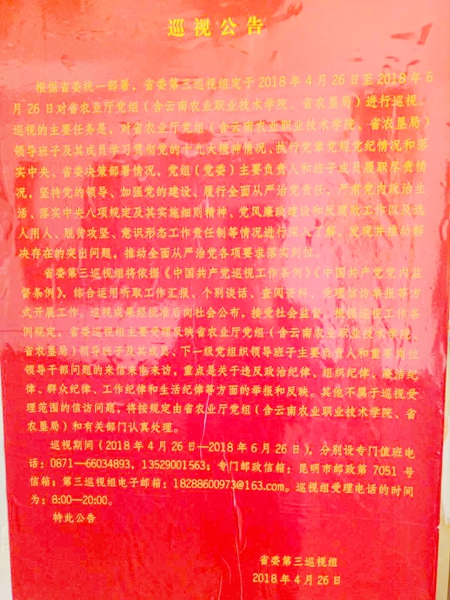 巡视公告
根据省委统一部署，省委第三巡视组定于2018年4月26日至2018年6
月26日对省农业厅党组（含云南农业职业技术学院、省农垦局）进行巡视。
巡视的主要任务是，对省农业厅党组（含云南农业职业技术学院、省农垦局）
领导班子及其成员学习贯彻党的十九大精神情况、执行党章党规党纪情况和落
实中央、省委决策部署情况，党组（党委）主要负责人和班子成员履职尽责情
况，坚持党的领导、加强党的建设、履行全面从严治党责任，严肃党内政治生
活、落实中央八项规定及其实施细则精神、党风廉政建设和反腐败工作以及选
人用人、脱贫攻坚、意识形态工作责任制等情况进行深入了解，发现并推动解
决存在的突出问题，推动全面从严治党各项要求落实到位。
省委第三巡视组将依据《中国共产党巡视工作条例》《中国共产党党内监
督条例》，综合运用听取工作汇报、个别谈话、查阅资料、受理信访举报等方
式开展工作，巡视成果经批准后向社会公布，接受社会监督。根据巡视工作条
例规定，省委巡视组主要受理反映省农业厅党组（含云南农业职业技术学院、
省农垦局）领导班子及其成员、下一级党组织领导班子主要负责人和重要岗位
领导干部问题的来信来电来访，重点是关于违反政治纪律、组织纪律、廉洁纪
律、群众纪律、工作纪律和生活纪律等方面的举报和反映。其他不属于巡视受
理范围的信访问题，将按规定由省农业厅党组（含云南农业职业技术学院、省
农垦局）和有关部门认真处理。
巡视期间（2018年4月26日—2018年6月26日），分别设专门值班电
话：0871—66034893，13529001563；专门邮政信箱：昆明市邮政第7051号
信箱；第三巡视组电子邮箱：18288600973@163.com。巡视组受理电话的时间
为：8:00—20:00。
特此公告
省委第三巡视组
2018年4月26日